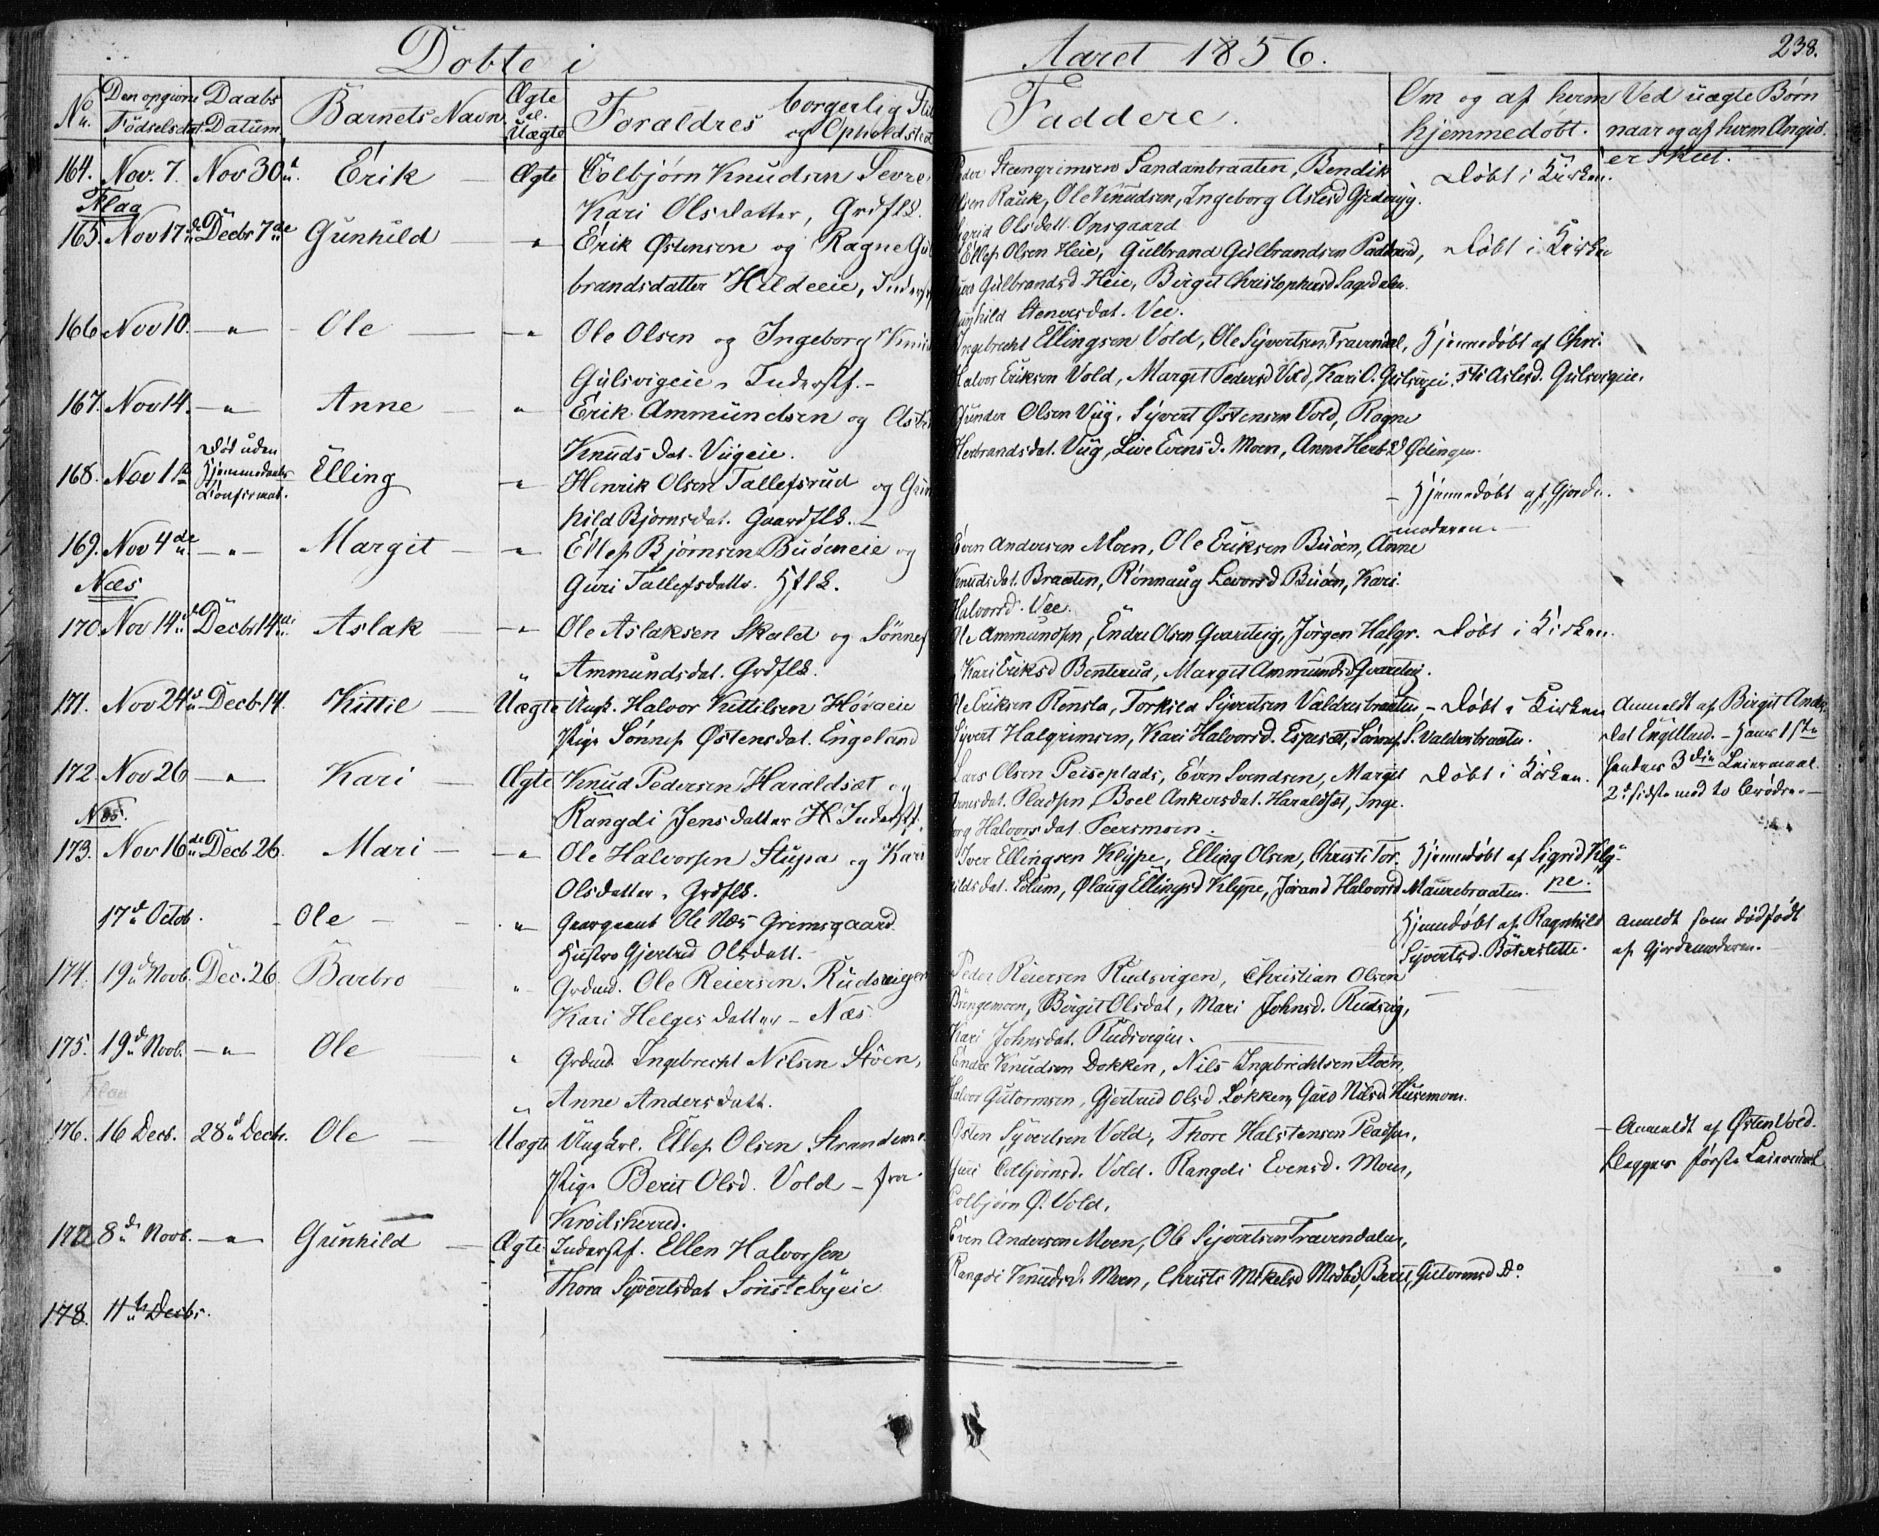 Døbte i Aaret 1856. 238.
No. Den opgivne Fødselsdat. Daabs Datum Barnets Navn Ægte el. Uægte Foraldres borgerlig og Opholdsted
Faddere. Om og af hvem hjemmedøbt. Ved uægte Børn naar og af hvem Angiv. er skeet.
164. Nov. 7. Nov 30 Erik Ægte Colbjørn Knudsen Sevre
Kari Olsdatter, Grdflk.
Steengrimsen Sandanbraaten, Bendik Døbt i Kirken.
Olsen Rauk, Ole Knudsen, Ingeborg Aslesd
Olsdatt. Onsgaard
Flaa
165. Nov 17 Decbr 7de Gunhild " Erik Østensen og Ragne Gul
brandsdatter Hildeeie, Inderst
Ellef Olsen Heie, Gulbrand Gulbrandsen Døbt i Kirken
Gulbrandsd Heie, Birgit Christophersd Sagedalen.
Gunhild Stenersdat. Vee.
166 Nov 10. " Ole " Ole Olsen og Ingeborg Knud
Gulsvigeie, Inderstf.
Ingebrecht Ellingsen Vold, Ole Syvertsen Travendal, Hjemmedøbt af Chri-
Halvor Eriksen Vold, Margit Pedersd Vold, Kari O. Gulsvigei. sti Aslesd. Gulsvigeie.
167. Nov 14. " Anne " Erik Ammundsen og
Knudsdat. Viigeie.
Gunder Olsen Viig, Syvert Østensen Vold, Ragne
Herbrandsdat. Viig, Live Evensd. Moen, Anne Herbd Ødingen.
168. Nov 1ste Død uden Hjemmedaabs Confirmat. Elling " Henrik Olsen Tallefsrud og Gun
hild Bjørnsdat. Gaardflk.
Hjemmedøbt af Gjorde-
moderen.
169. Nov 4de " Margit " Ellef Bjørnsen Buøeneie og
Guri Tallefsdatte. Hflk.
Even Andersen Moen, Ole Eriksen Buøen, Anne
Knudsdat. Braaten, Rønnaug Levorsd Buøen, Kari
Halvorsd. Vee.
Næs
170. Nov 14 Decbr 14 Aslak " Ole Aslaksen Skald og Sønnef
Ammundsdat. Grdflk.
Ole Ammundsen, Endre Olsen Jørgen Halgr. Døbt i Kirken.
Kari Eriksd Benterud, Margit Ammundsd
171. Nov 24 Decb 14. Kittil Uægte Ungk. Halvor Kittilsen Høvaeie
Pige Sønnef Østensdat. Engeland
Ole Eriksen Rensla, Torkild Syvertsen Valdresbraaten, Døbt i Kirken
Syvert Halgrimsen, Kari Halvorsd. Espeset, Sønnef S. Valdresbraaten.
Anmeldt af Birgit Anders-
dat Engelland. Hans 1ste
hendes 3die Leiermaal.
2 sidste med to Brødre.
172. Nov 26 " Kari Ægte Knud Pedersen Haraldset og
Rangdi Jensdatter Inderstf.
Lars Olsen Peiseplads, Even Svendsen, Margit Døbt i Kirken.
Arnesdat. Boel Ankersdat. Haraldset, Inge-
borg Halvorsdat. Peersmoen.
Næs.
173. Nov 16 Decb 26. Mari " Ole Halvorsen Stupa og Kari
Olsdatter, Grdflk.
Iver Ellingsen Klype, Elling Olsen, Christi Tor- Hjemmedøbt af Sigrid Kly-
kildsdat. Ølaug Ellingsd Klype, Jørand Halvorsd Maurebraaten. pe.
17 Octob. Ole " Ole Næs Grimsgaard
Hustro Gjertrud Olsdatt.
Hjemdøbt af Ragnhild
Syvertsd. Bøterslette.
anmeldt som dødfødt
af Gjordemoderen.
174. 19 Novb. Dec. 26 Barbro " Grdmd. Ole Reiersen Rudsvigen
Kari Helgesdatter Næs
Peder Reiersen Rudsvigen, Christian Olsen
Bringemoen, Birgit Olsdat, Mari Johnsd. Rudsvig,
Kari Johnsdat. Rudsvigen.
175. 19 Novb. " Ole " Grdmd. Ingebrecht Nilsen Støen,
Anne Andersdatt.
Endre Knudsen Dokken, Nils Ingebrechtsen Støen,
Halvor Gutormsen, Gjertrud Olsd Løkken, Guro Nilsd Husemoen.
Flaa
176. 16 Decb. 28 Decbr. Ole Uægte Ungkrl. Ellef Olsen Strande
Pige Berit Olsd. Vold fra
Krødsherred.
Østen Syvertsen Vold, Thore Halstensen Pladsen,
Guri Colbjørnsd. Vold. Rangdi Evensd. Moen,
Colbjørn Ø. Vold.
Anmeldt af Østen Vold.
Begges første Leiermaal
177. 8de Novb. " Gunhild Ægte Inderstf. Ellen Halvorsen
Thora Syvertsdat Sønstebyeie
Even Andersen Moen, Ole Syvertsen Travendalen,
Rangdi Knudsd. Moen, Christi Mikelsd Medbø, Berit Gutormsd Do.
178. 11te Decbr.